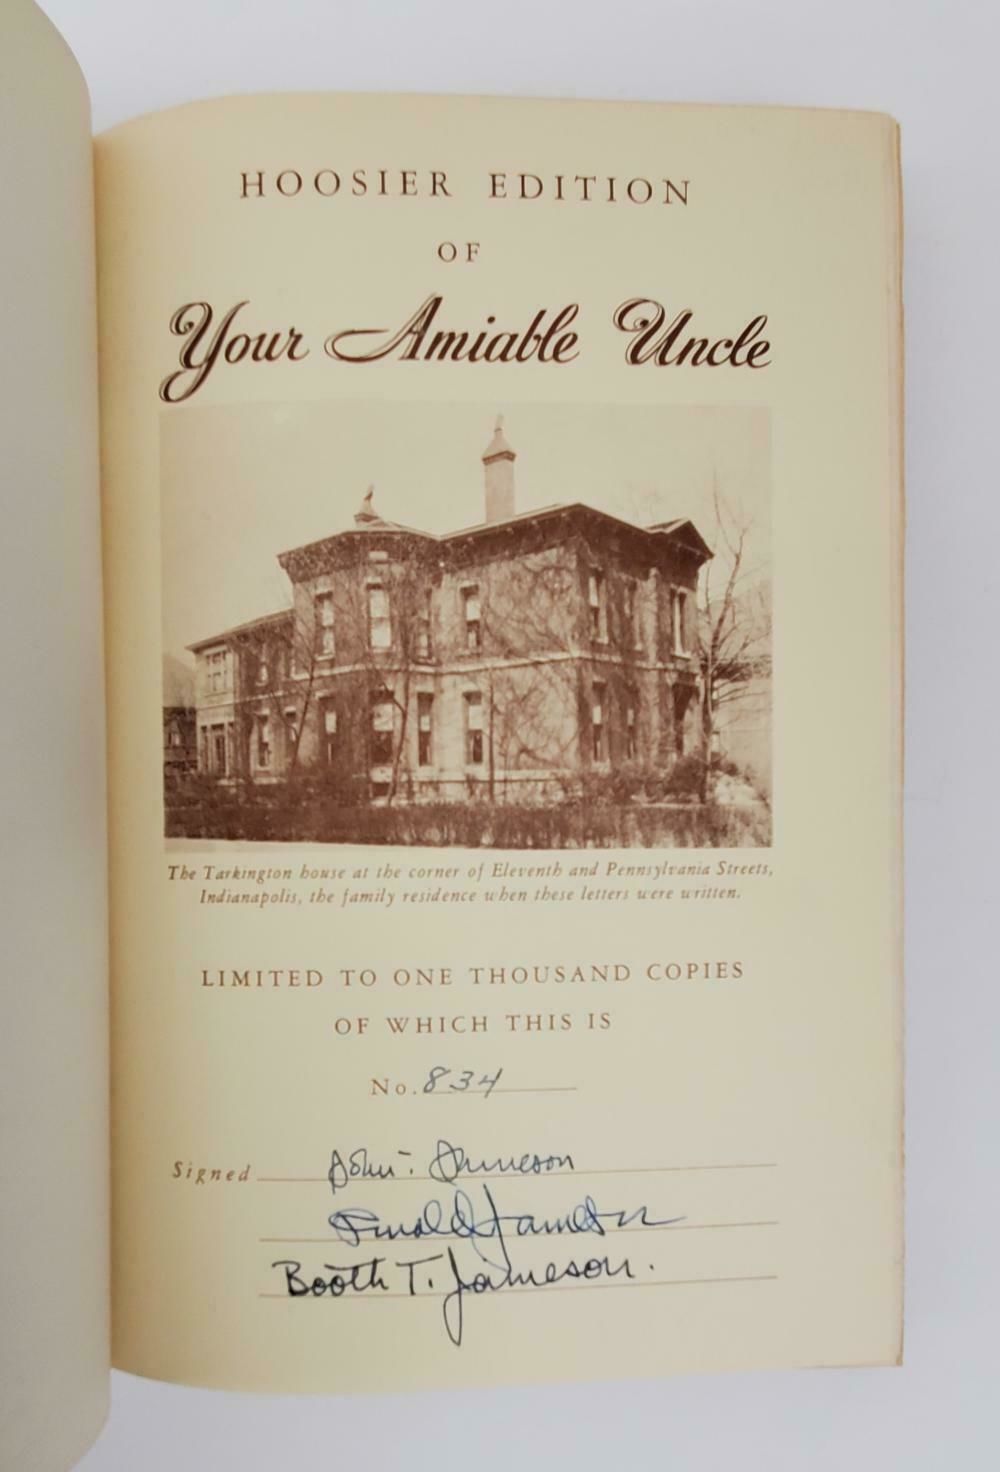 HOOSIER EDITION
OF
Your Amiable Uncle
The Tarkington house at the corner of Eleventh and Pennsylvania Streets,
Indianapolis, the family residence when these letters were written.
LIMITED TO ONE THOUSAND COPIES
OF WHICH THIS IS
No. 834
Signed John Jameson
Donald Jameson
Booth T. Jameson.